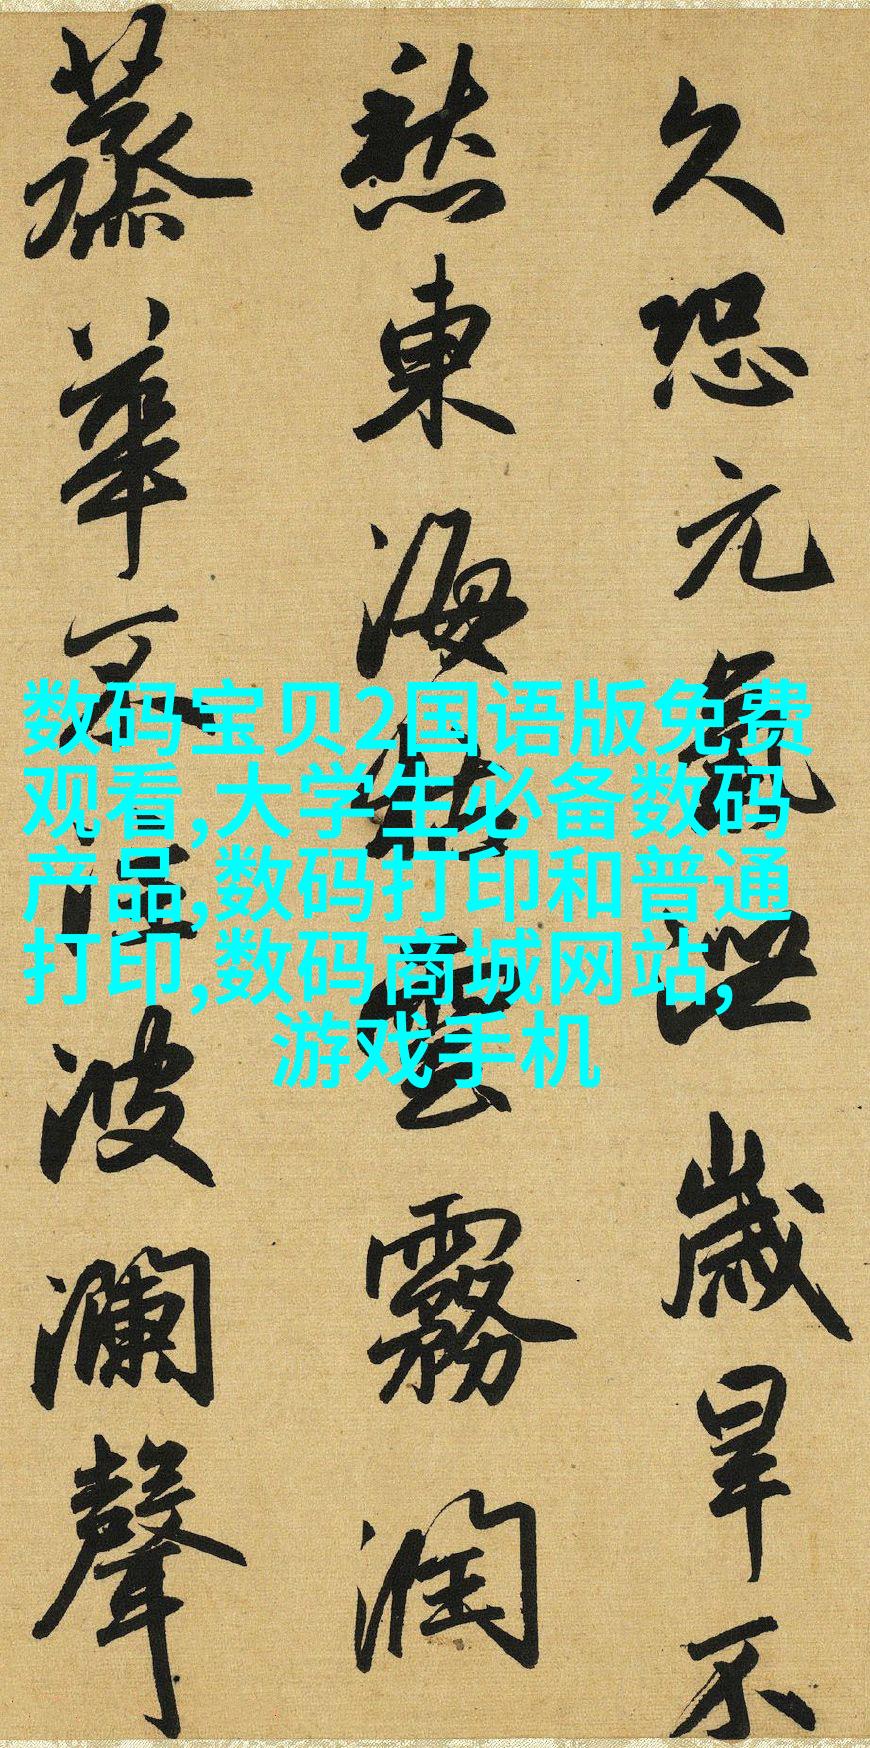 久恐元氣泄歲旱不
愁東海枯雲霧潤
蒸華不注波瀾聲
数码宝贝2国语版免费
观看,大学生必备数码
产品,数码打印和普通
打印,数码商城网站,
游戏手机